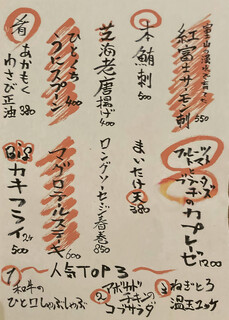 富士山の湧水で育てた
紅富士サーモン刺
550
本鮪刺
500
芝海老唐揚げ
400
ひとくち
うにスプーン
400
肴
あかもく
わさび正油
380
フルーツトマトと
ブッラータチーズ
のカプレーゼ
1200
まいたけ天
380
ロングソーセージ春巻
850
マグロテールステーキ
600
BIG
カキフライ
500
人気TOP3
1
和牛の
ひと口しゃぶしゃぶ
2
アボカド
チキン
コブサラダ
3
ねぎとろ
温玉ユッケ